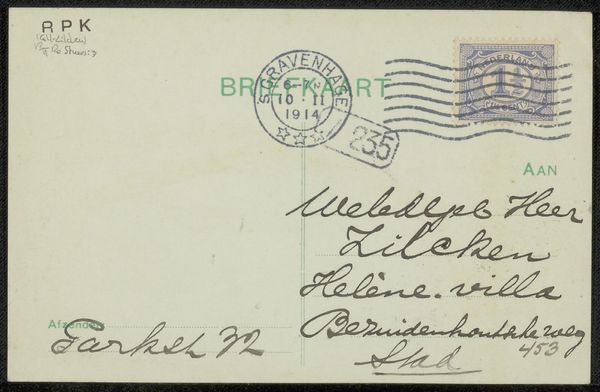 RPK
BRIEFKAART
'SGRAVENHAGE
6-7 N
10 · II
1914
235
NEDERLAND
1½
CENT
AAN
WelEdlgeb Heer
Zilcken
Helène. villa
Bezuidenhoutsche weg
453
Stad
Afzender
Parkstr 32